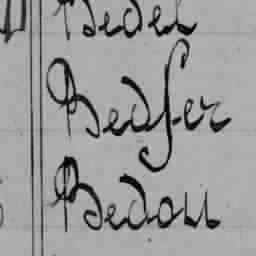 Bedel
Bedfer
Bedou